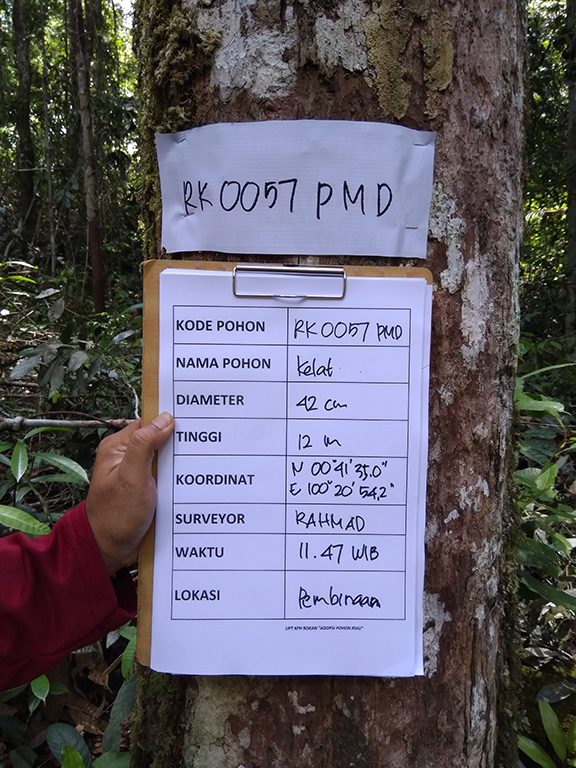 RK0057 PMD
KODE POHON RK0057 PMD
NAMA POHON Kelat
DIAMETER 42 cm
TINGGI 12 m
KOORDINAT N 00°41'35,0"
E 100°20'54,2"
SURVEYOR RAHMAD
WAKTU 11.47 WIB
LOKASI Pembinaan
UPT KPH ROKAN "ADOPSI POHON RIAU"